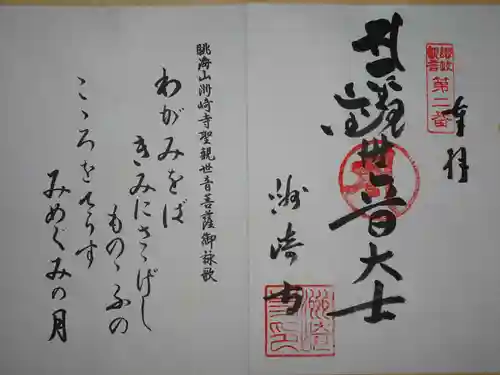 奉拝
讃岐
観音
第二番
聖観世音大士
洲崎寺
眺海山洲崎寺聖観世音菩薩御詠歌
わがみをば
きみにさゝげし
ものゝふの
こゝろをてらす
みめぐみの月